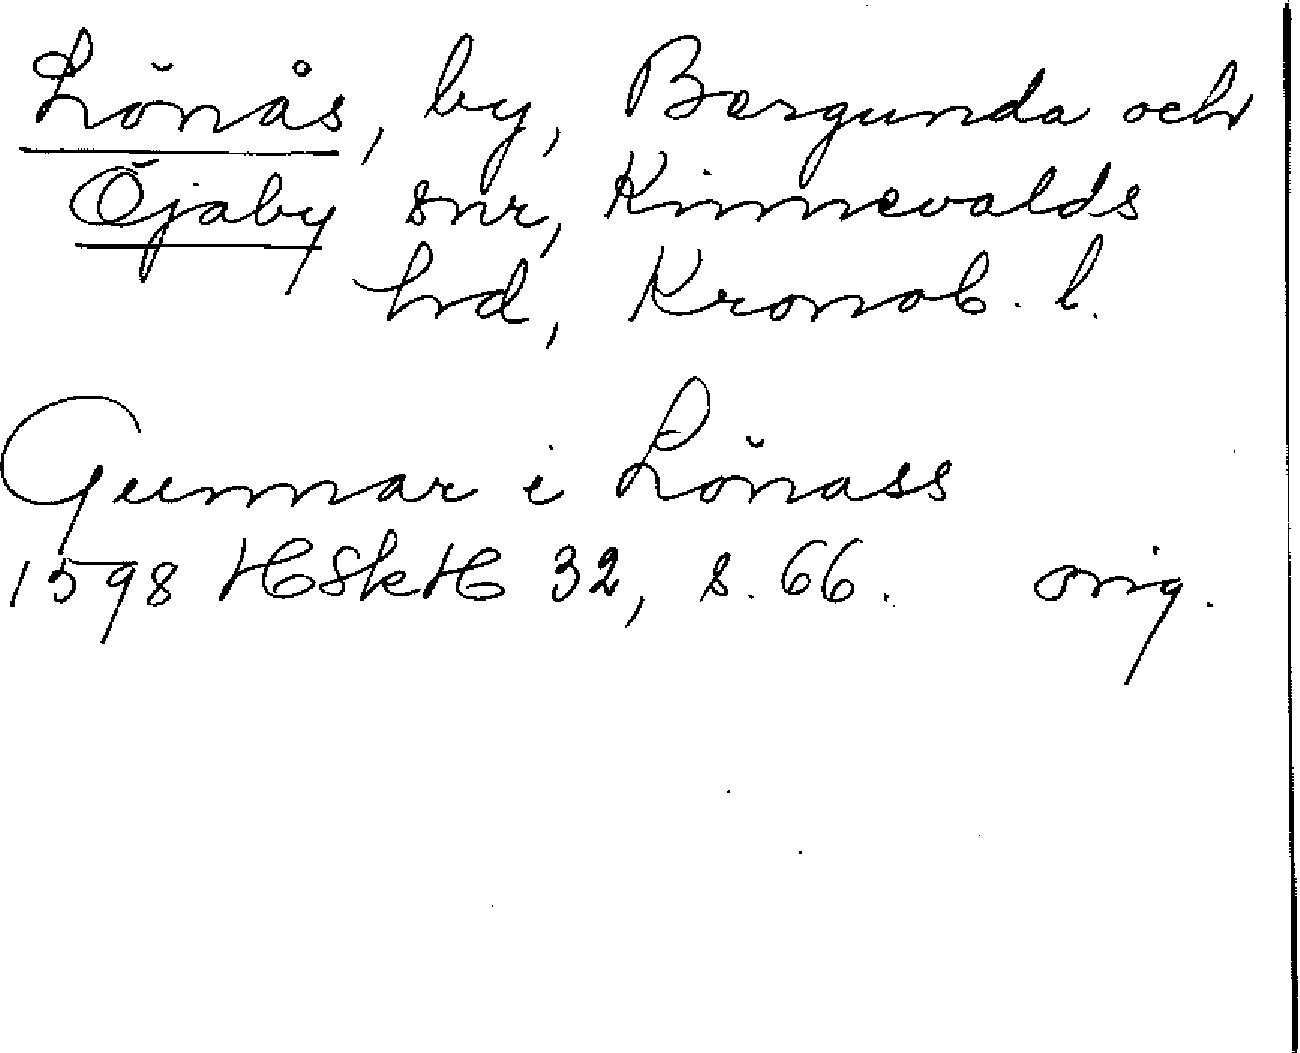 Lönås, by, Bergunda och
Öjaby snr, Kinnevalds
hd, Kronob. l.
Gunnar i Lönass
1598 HSkH 32, s. 66. orig.